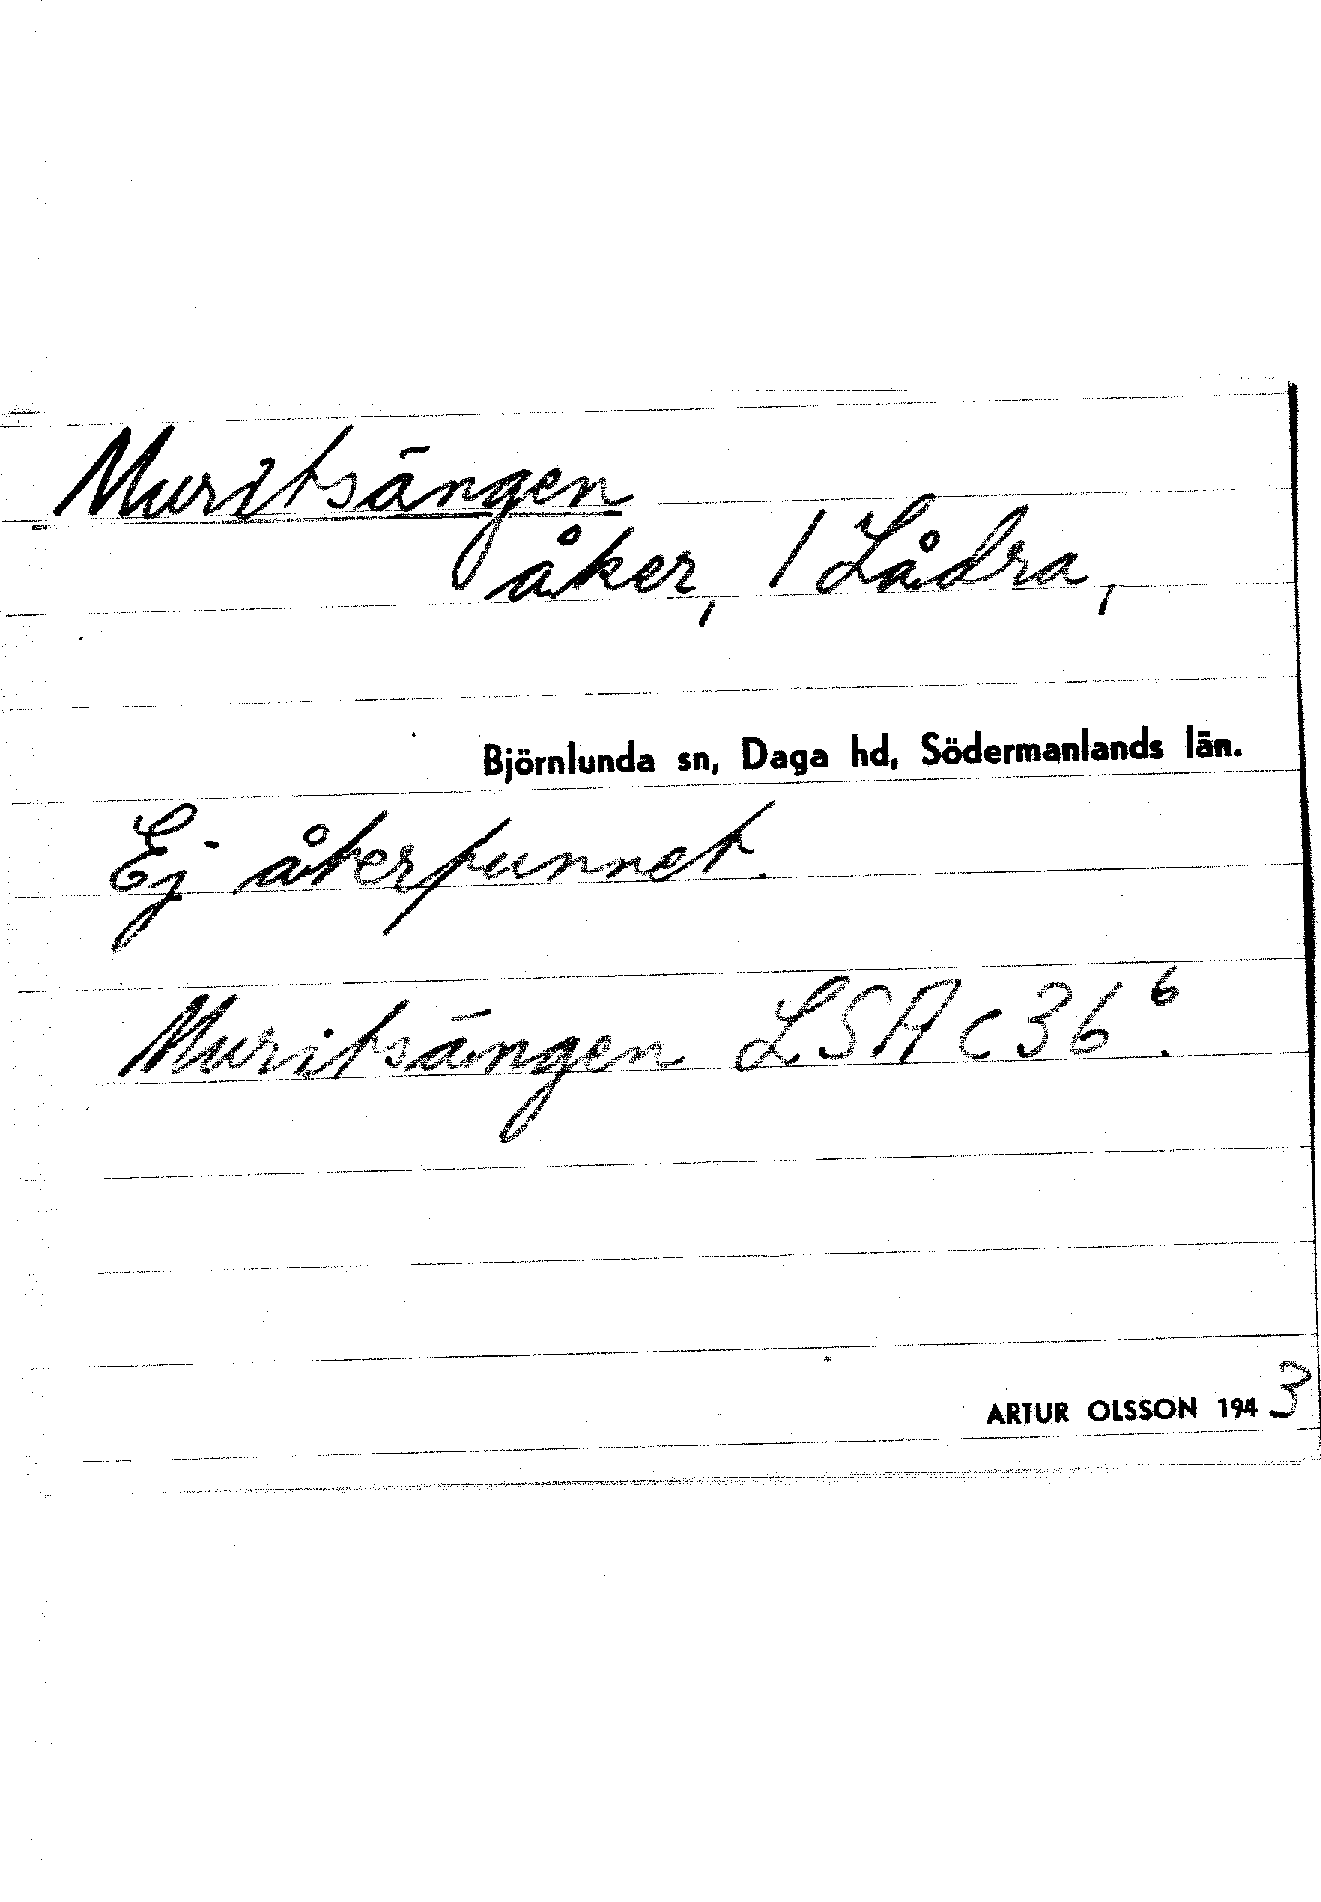 Muritsängen
åker, 1 Lådra,
Björnlunda sn, Daga hd, Södermanlands län.
Ej återfunnet.
Muritsängen LSA c 36⁶.
ARTUR OLSSON 1943